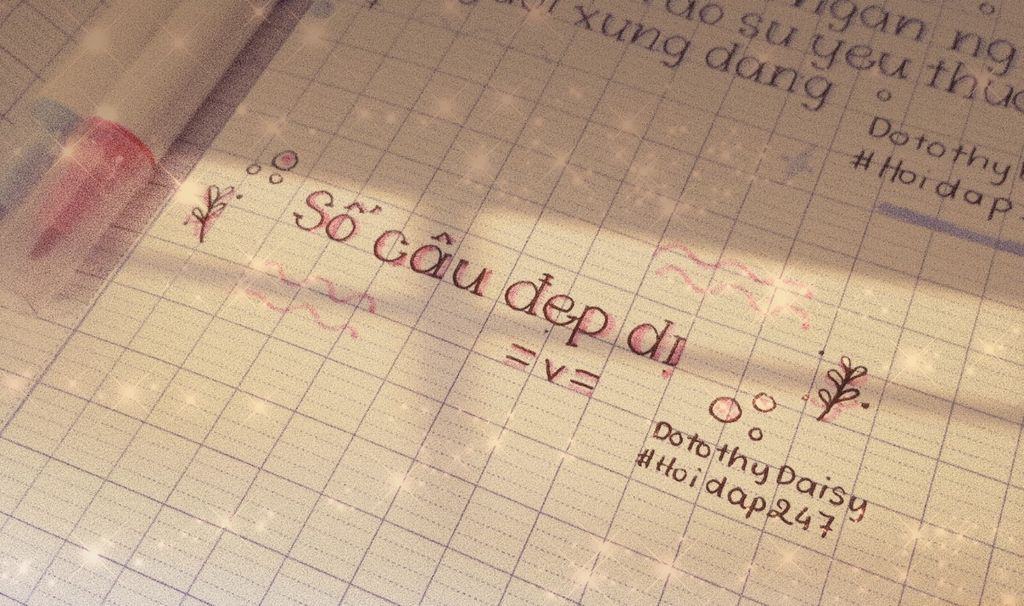 ngan ng
ao su yeu thuo
xung dang
Dotothy
#Hoidap
Số câu đẹp dị
= v =
Dotothy Daisy
#Hoidap247